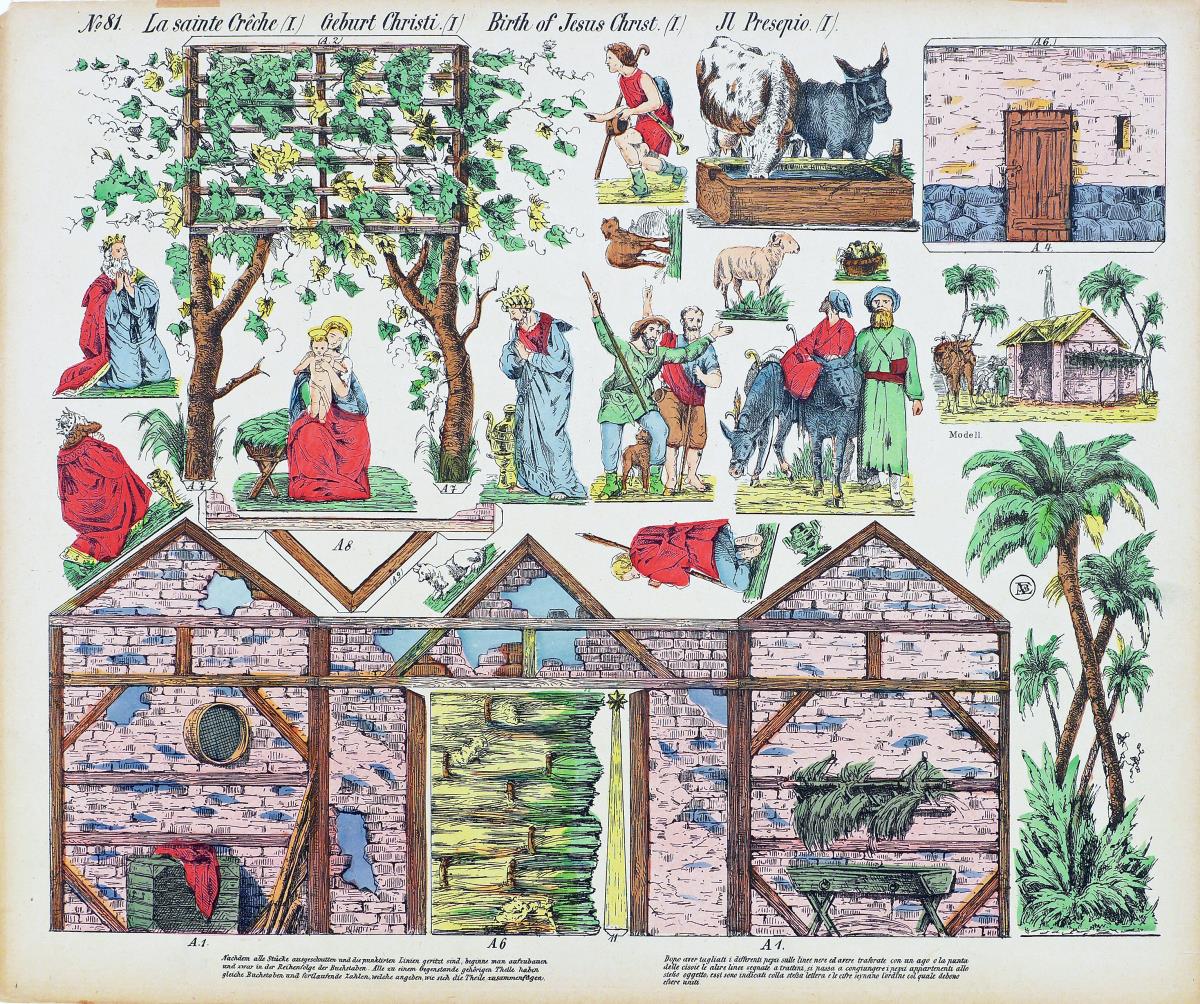 No 81. La sainte Crêche (I.) Geburt Christi. (I) Birth of Jesus Christ. (I) Il Presepio. (I).
(A.2)
(A.6.)
A 4.
11
Modell.
A7
A8.
(A9)
A.1.
A 6
11
A 1.
Nachdem alle Stücke ausgeschnitten und die punktirten Linien geritzt sind, beginne man aufzubauen
und zwar in der Reihenfolge der Buchstaben. Alle zu einem Gegenstande gehörigen Theile haben
gleiche Buchstaben und fortlaufende Zahlen, welche angeben, wie sich die Theile zusammenfügen.
Dopo aver tagliati i differenti pezzi sulle linee nere ed avere traforate con un ago o la punta
delle cisoie le altre linee segnate a trattini, si passa a congiungere i pezzi appartenenti allo
stesso oggetto, essi sono indicati colla stessa lettera e le cifre segnano l'ordine col quale debono
essere uniti.